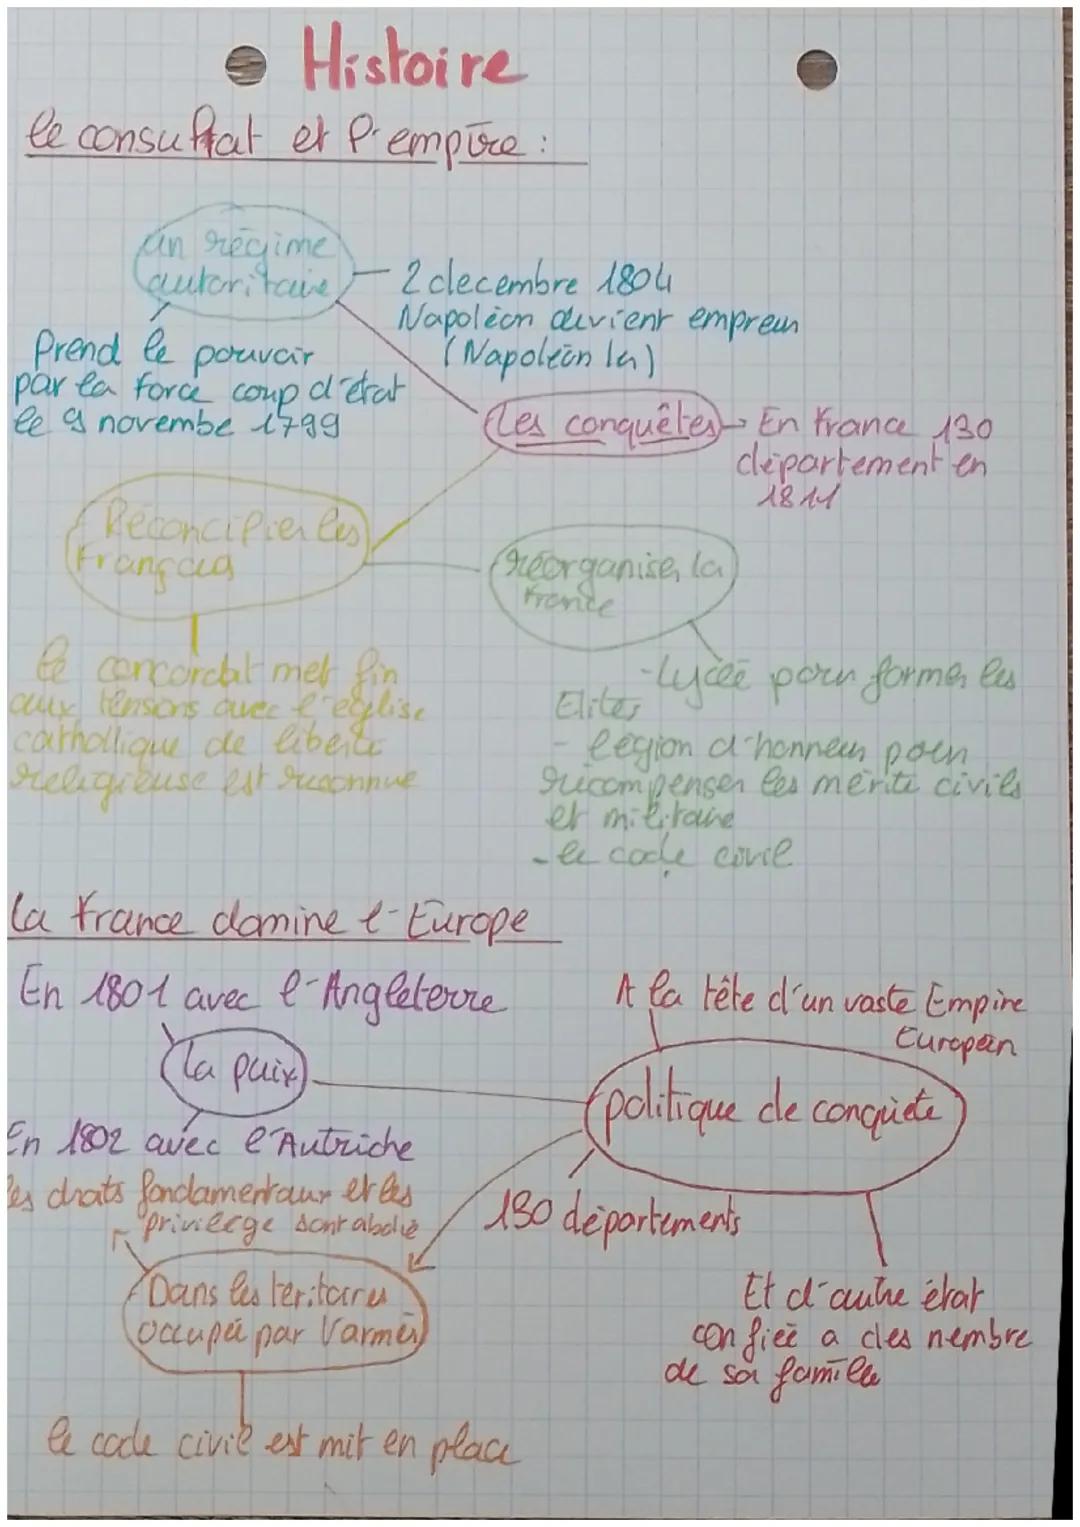 Histoire
le consultat et l'empire :
un régime
autoritaire
2 decembre 1804
Napoléon devient empreur
(Napoléon Ier)
Prend le pouvoir
par la force coup d'état
le 9 novembe 1799
Les conquêtes
En France 130
département en
1811
Réconcilier les
Français
réorganiser la
France
le concordat met fin
aux tensions avec l'église
cathollique de liberté
religieuse est reconnue
- Lycée pour former les
Elites
- légion d'honneur pour
récompenser les mérite civils
et militaire
- le code civil
la France domine l'Europe
En 1801 avec l'Angleterre
A la tête d'un vaste Empire
Européen
la paix
politique de conquète
En 1802 avec l'Autriche
les droits fondamentaux et les
privilège sont abolie
130 départements
Dans les teritoires
occupée par l'armée
Et d'autre état
confiée a des membre
de sa famille
le code civil est mit en place